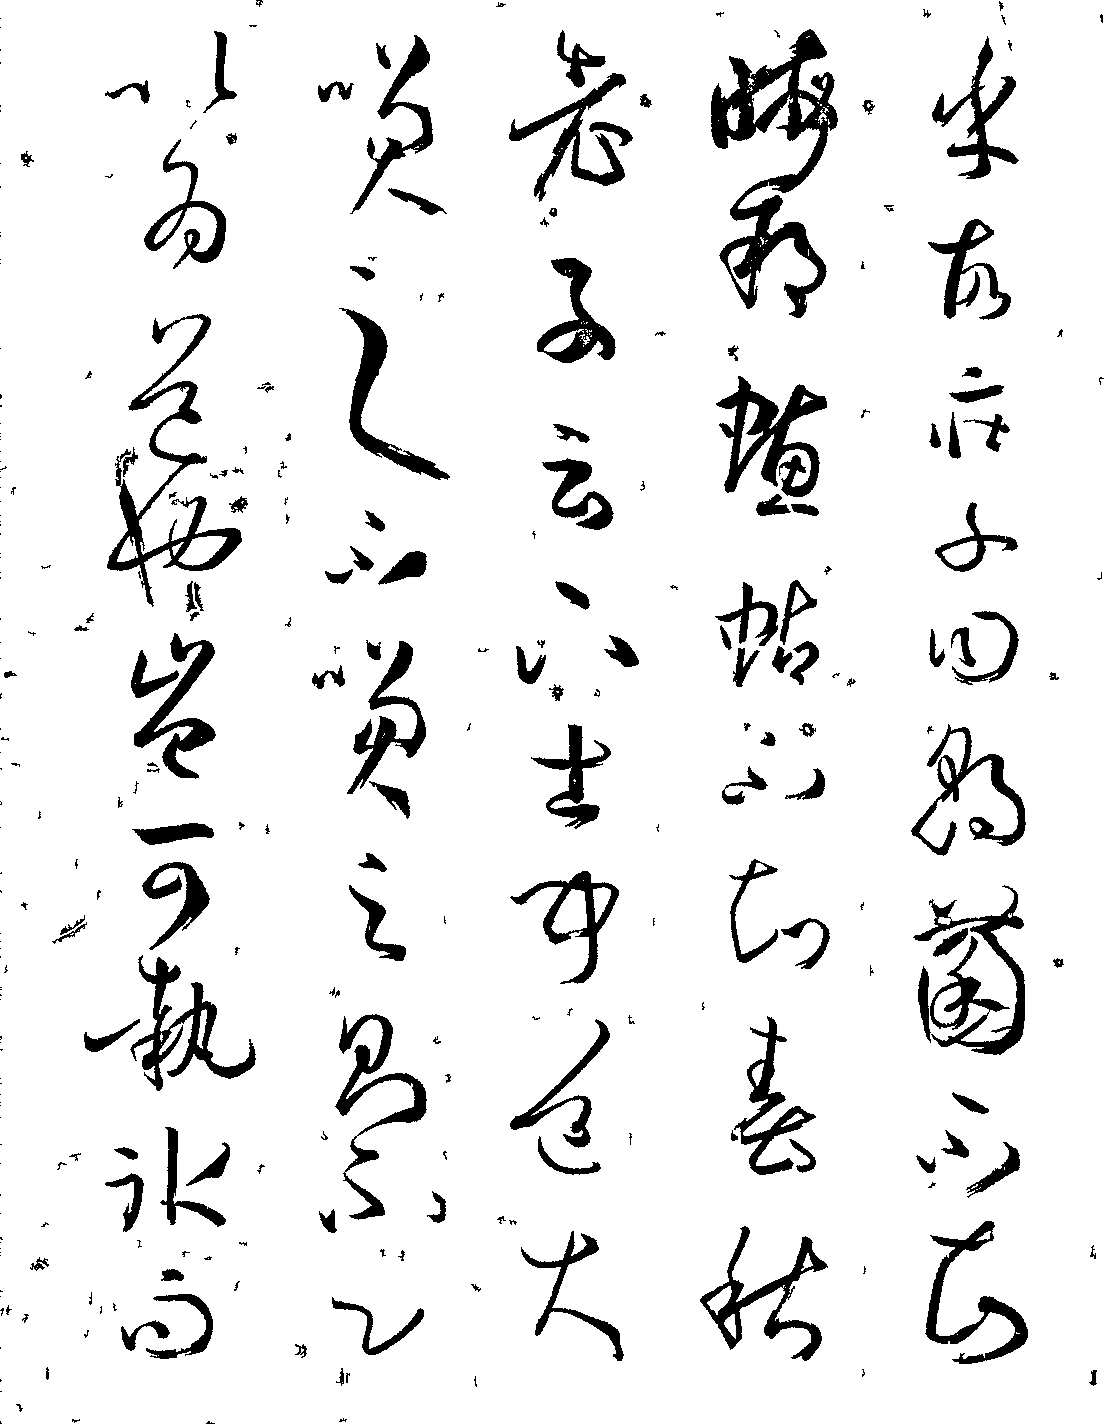 乎故莊子曰朝菌不知
晦朔蟪蛄不知春秋
老子云下士聞道大
笑之不笑之則不足
以為道也豈可執冰而